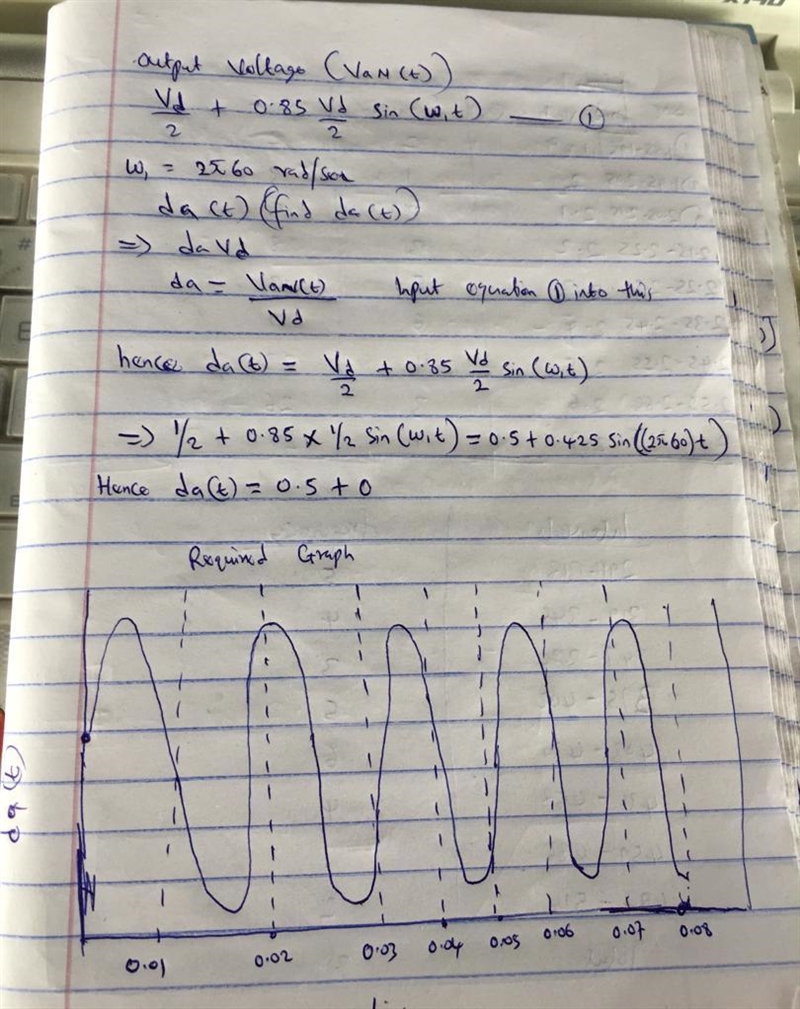 Output Voltage (VaN(t))
Vd/2 + 0.85 Vd/2 sin(ω,t) — ①
ω₁ = 2π60 rad/sec
da(t) (find da(t))
=> da Vd
da = VaN(t)/Vd Input equation ① into this
hence da(t) = Vd/2 + 0.85 Vd/2 sin(ω,t)
=> 1/2 + 0.85 × 1/2 sin(ω,t) = 0.5 + 0.425 sin((2π60)t)
Hence da(t) = 0.5 + 0
Required Graph
da(t)
0.01 0.02 0.03 0.04 0.05 0.06 0.07 0.08